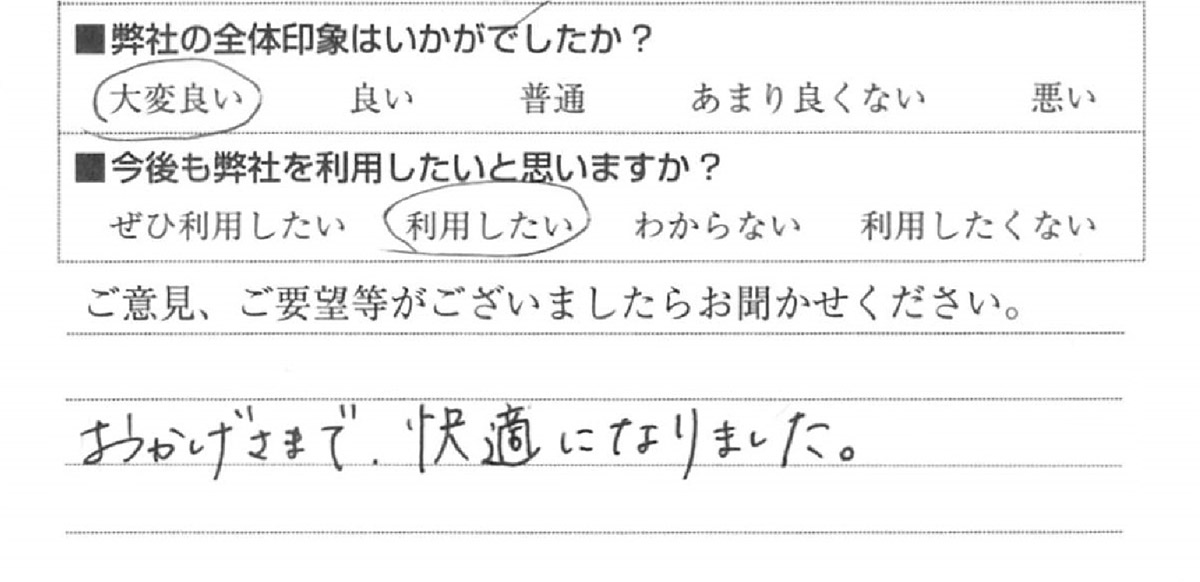 ■弊社の全体印象はいかがでしたか？
大変良い 良い 普通 あまり良くない 悪い
■今後も弊社を利用したいと思いますか？
ぜひ利用したい 利用したい わからない 利用したくない
ご意見、ご要望等がございましたらお聞かせください。
おかげさまで、快適になりました。